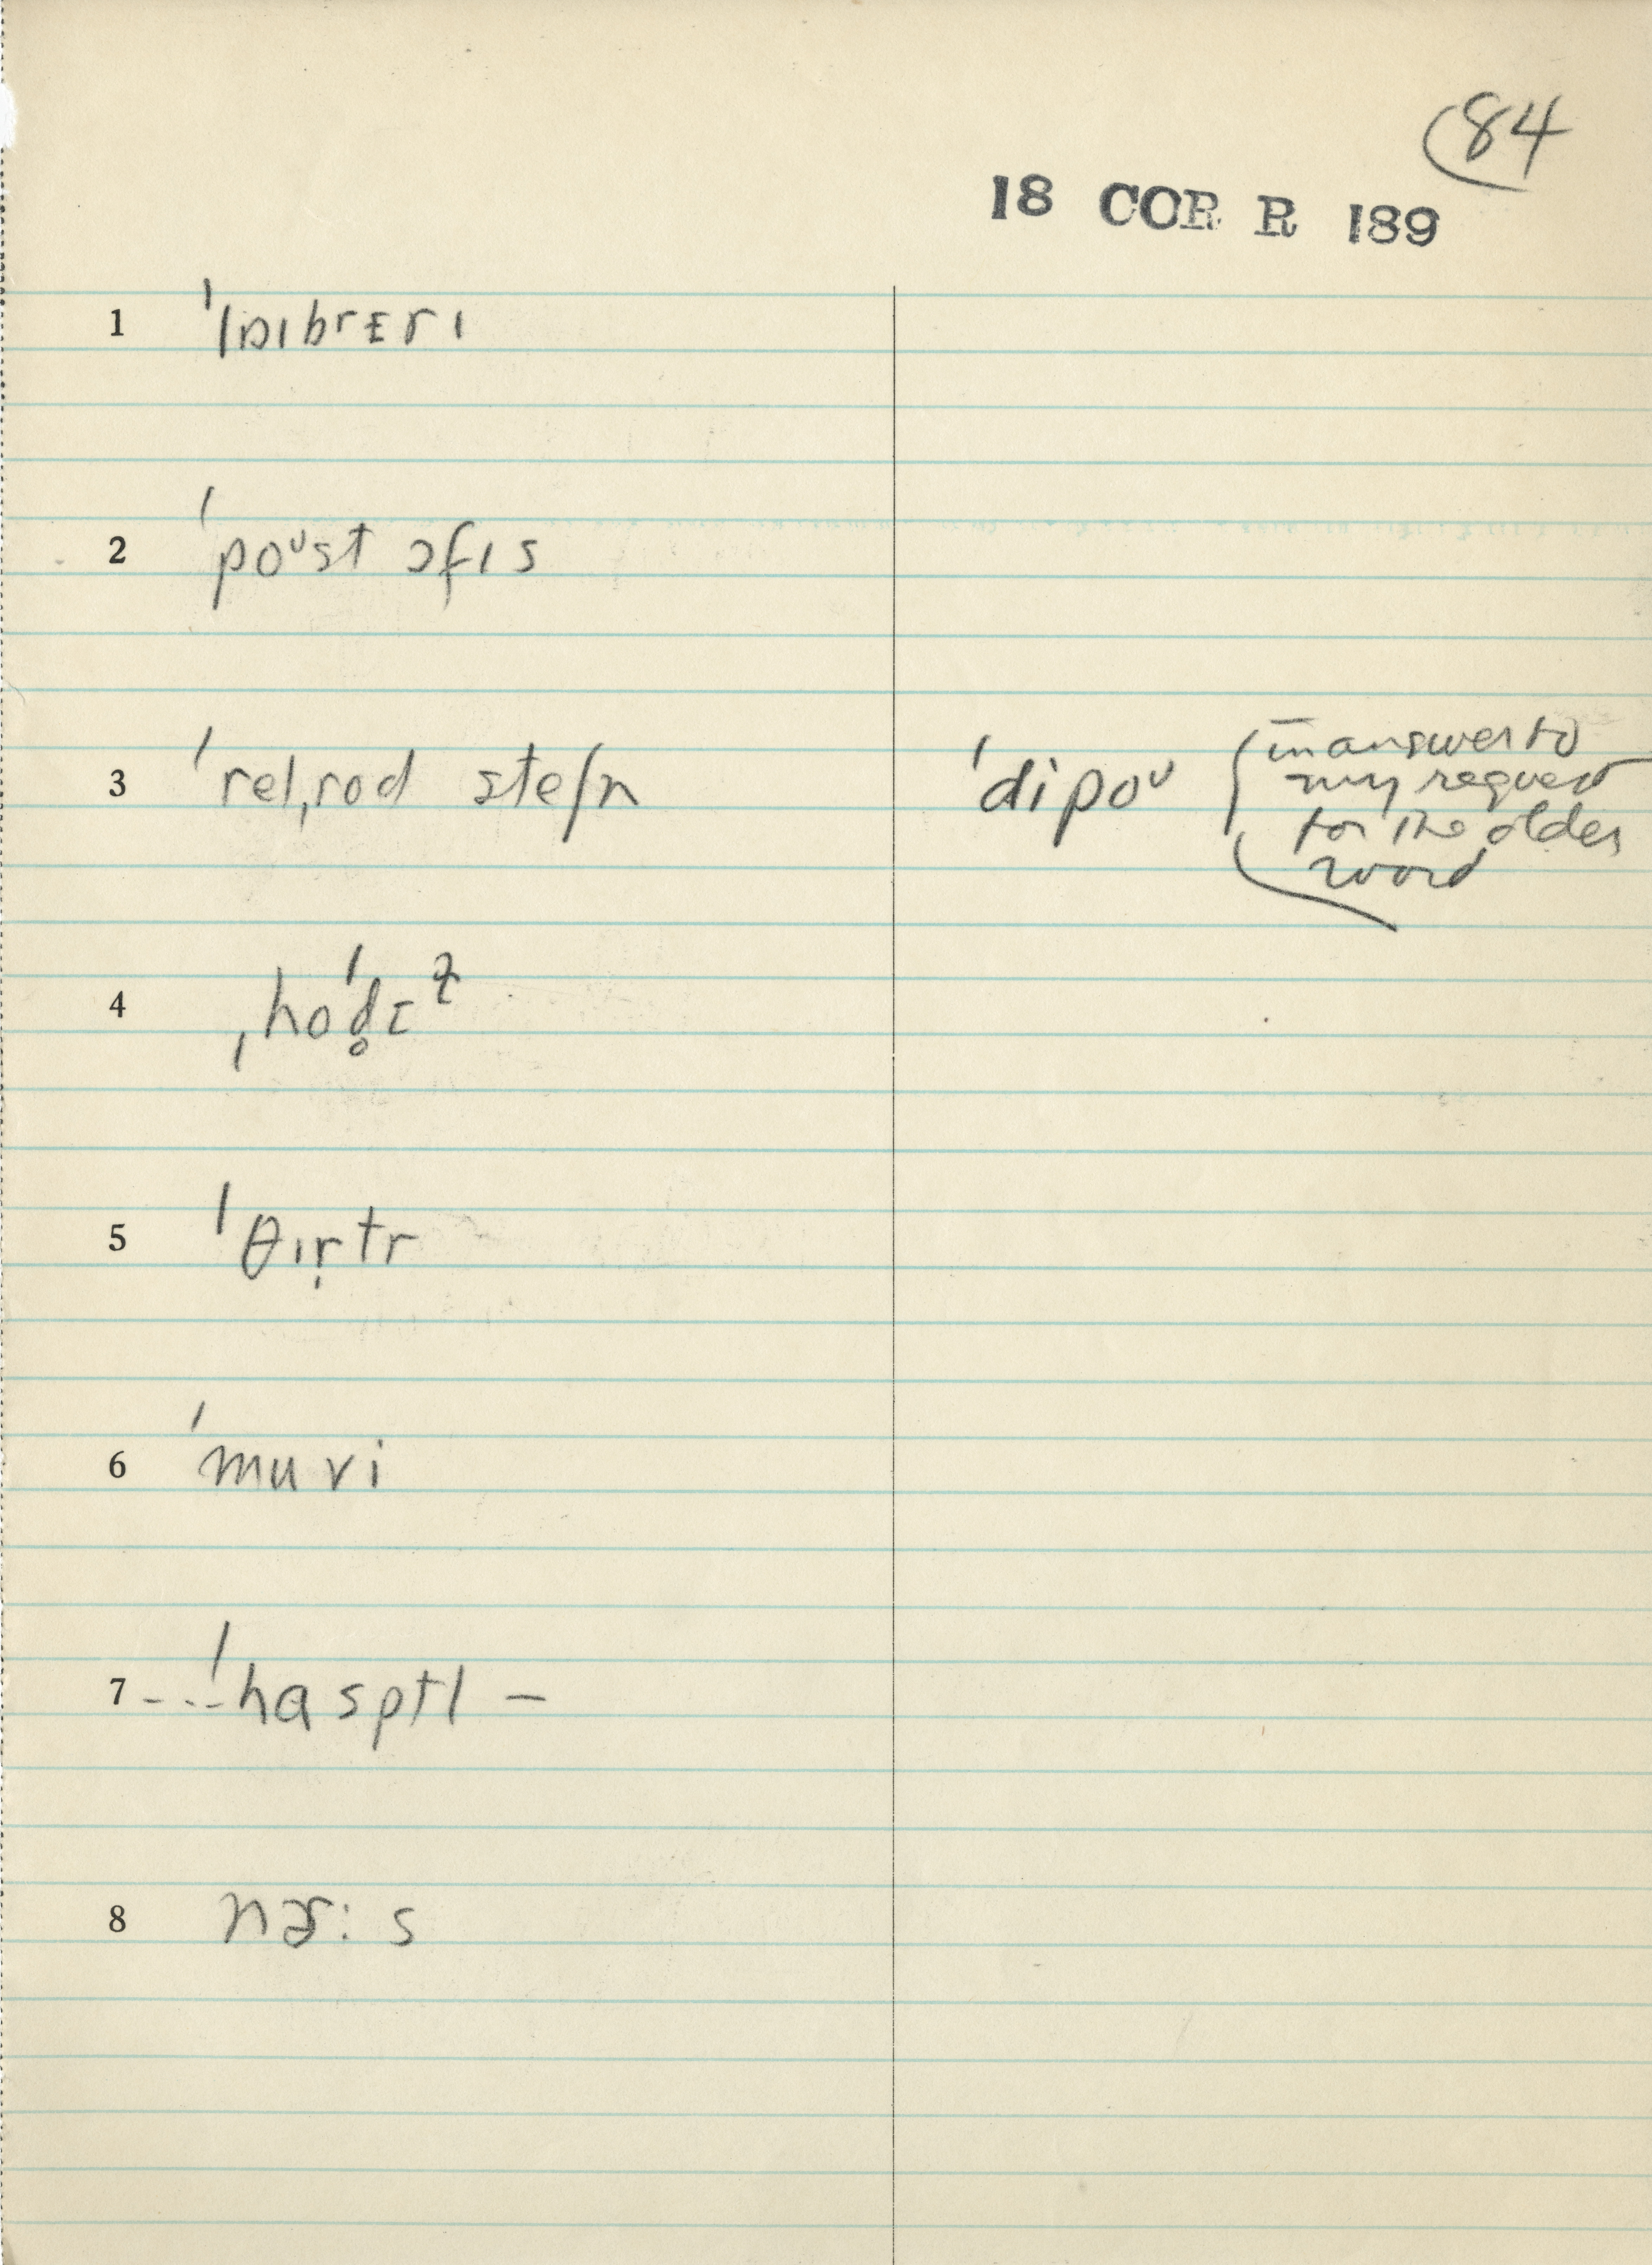 84
18 COR R 189
1 ˈlɒɪbrɛrɪ
2 ˈpoᶷst ɔfɪs
3 ˈrelˌrod steʃn ˈdipoᶷ (in answer to
my request
for the older
word
4 ˌhoˈd̥ɛᶻ
5 ˈθɪr̩tr
6 ˈmuvi
7 --ˈhasptl –
8 nɝ:s